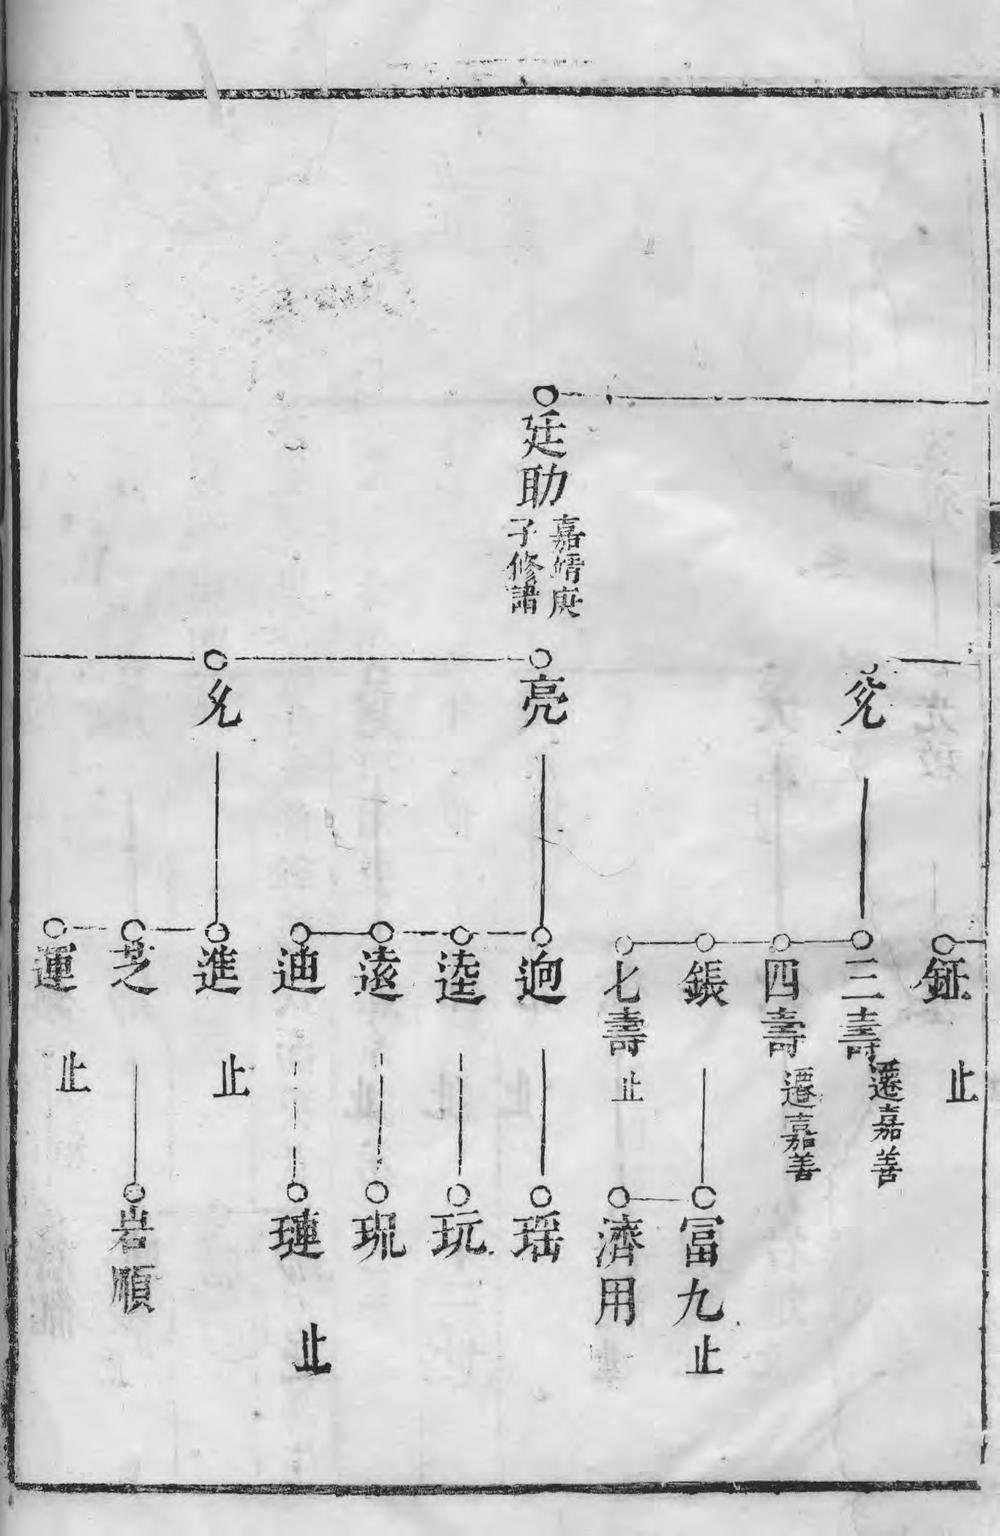 廷助
嘉靖庚
子修譜
兖
亮
允
鉦
止
三壽
遷嘉善
四壽
遷嘉善
鋹
七壽
止
迥
逵
遠
迪
進
止
芝
運
止
冨九
止
濟用
瑶
玩
琨
璉
止
岩順